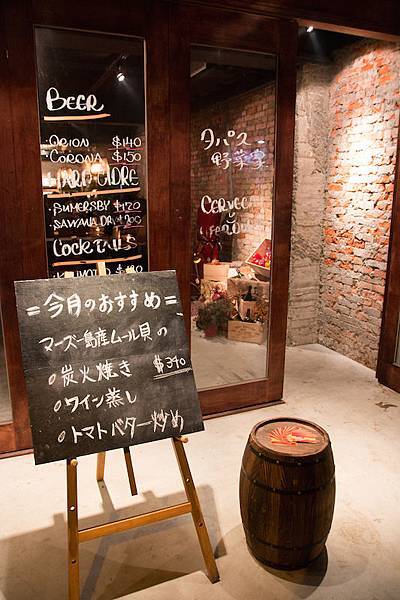 BEER
・ORION $140
・CORONA $150
HARD CIDRE
・SUMERSBY $170
・SAVANA DRY $200
COCKTAILS
タパス
野菜
CERVEC
=今月のおすすめ=
マーズー島産ムール貝の
○炭火焼き $340
○ワイン蒸し
○トマトバター炒め